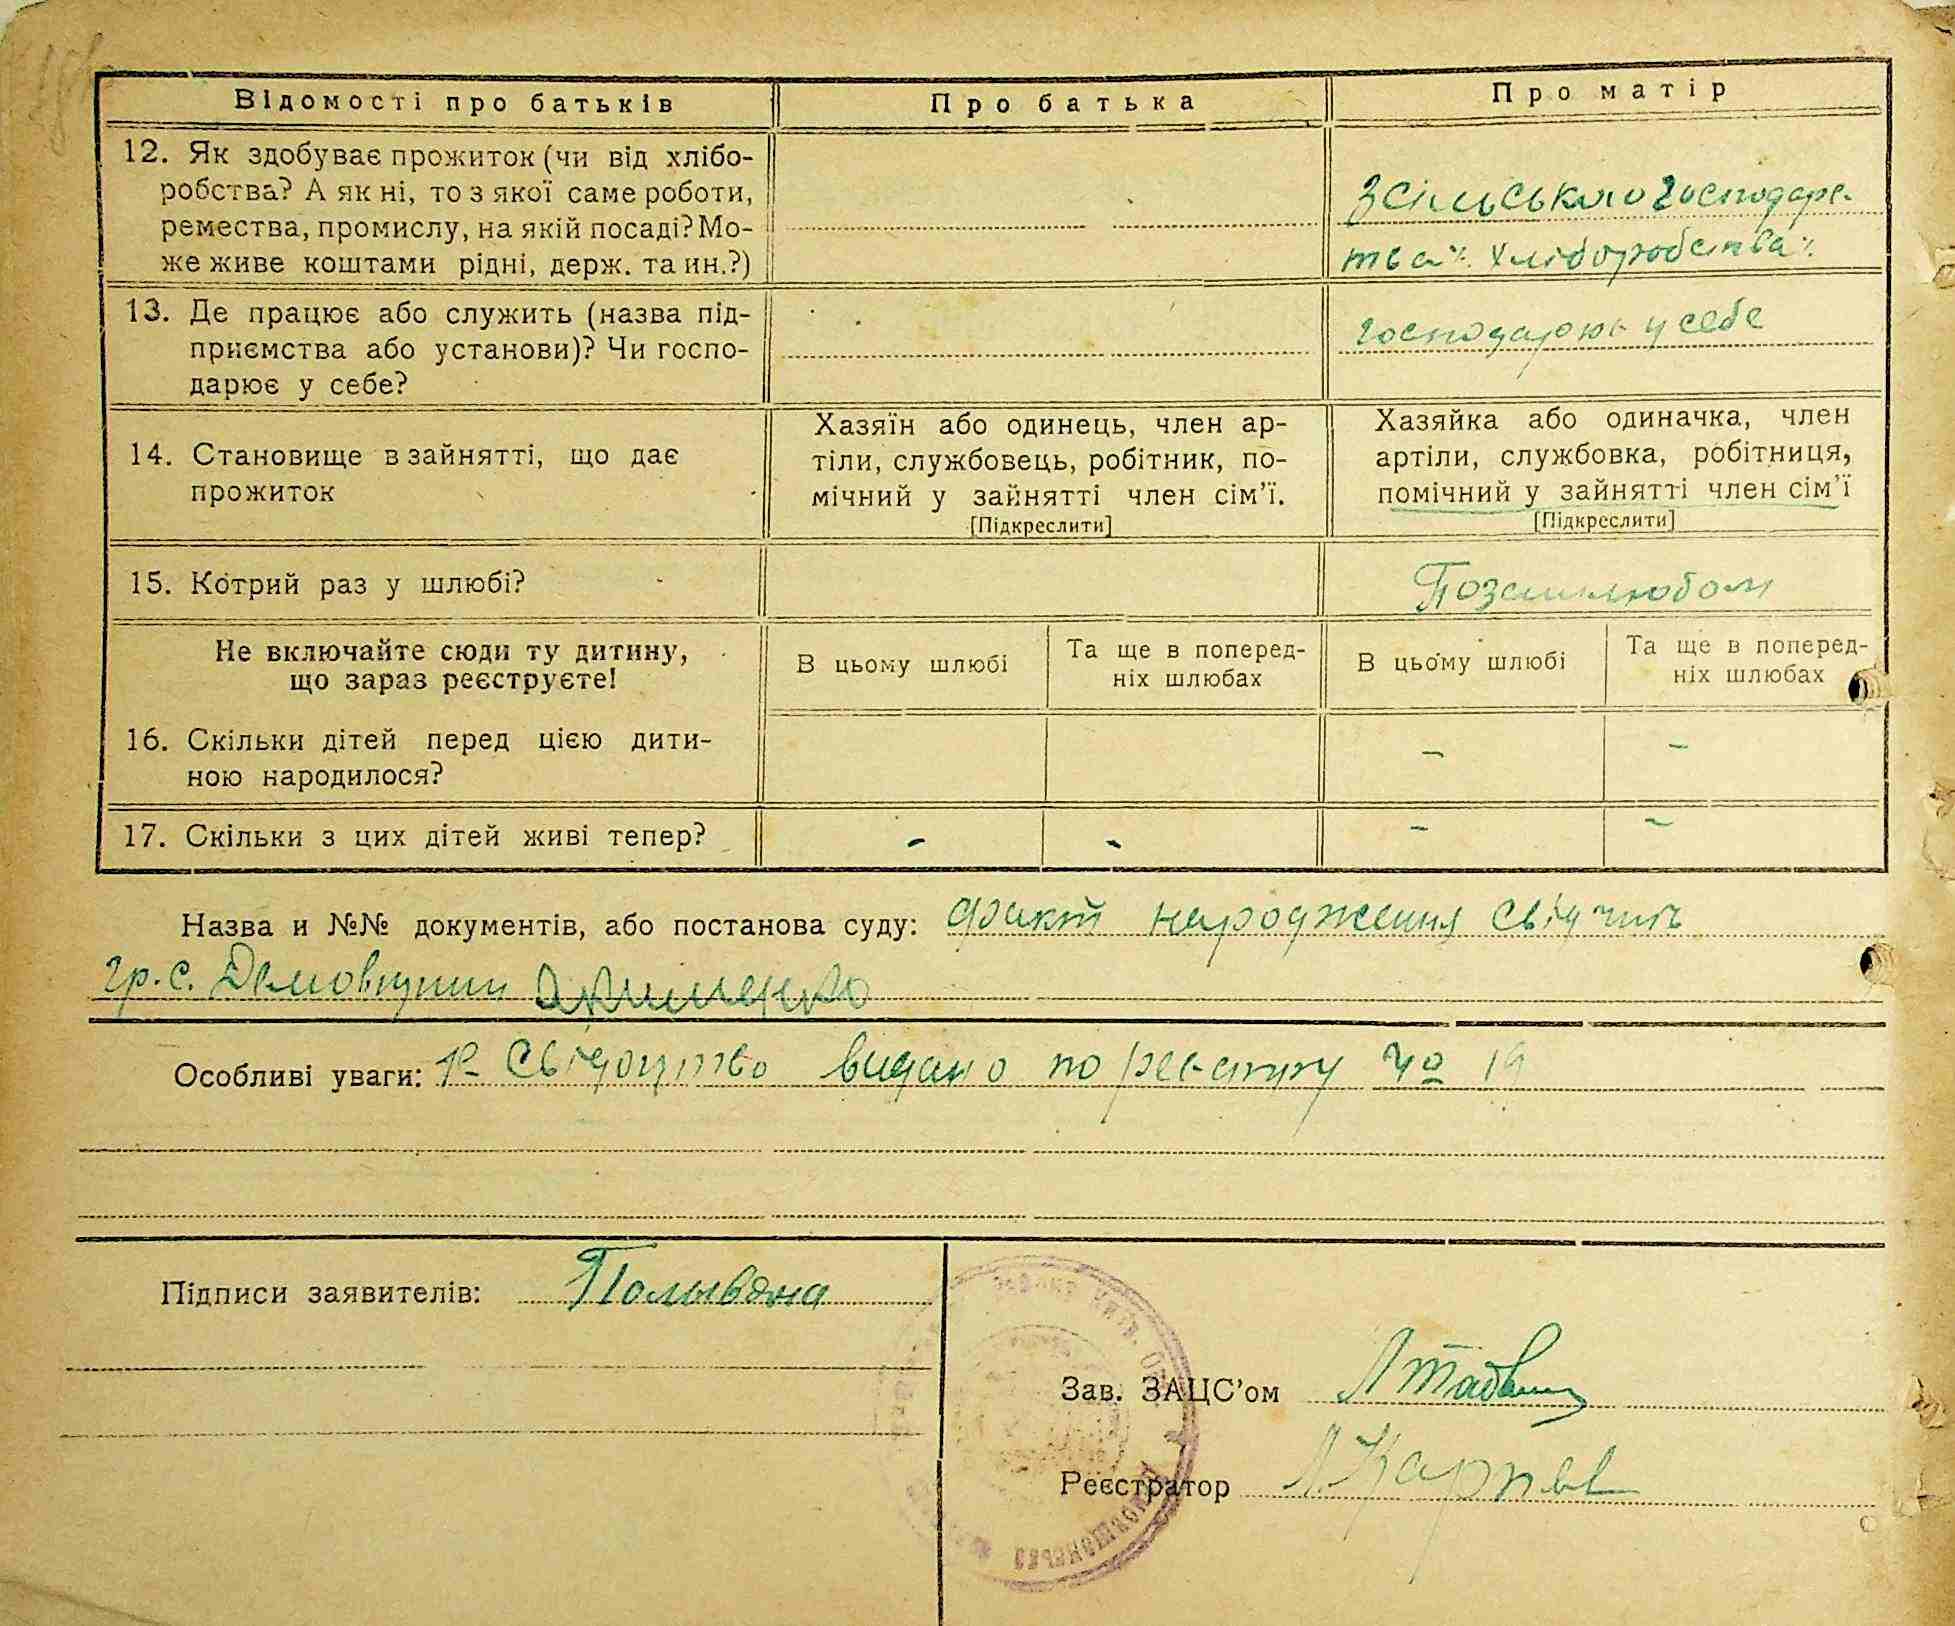 Відомості про батьків
Про батька
Про матір
12. Як здобуває прожиток (чи від хлібо-
робства? А як ні, то з якої саме роботи,
ремества, промислу, на якій посаді? Мо-
же живе коштами рідні, держ. та ин.?)
з сільського господарс-
тва хліборобства
13. Де працює або служить (назва під-
приємства або установи)? Чи госпо-
дарює у себе?
господарює у себе
14. Становище в зайнятті, що дає
прожиток
Хазяїн або одинець, член ар-
тіли, службовець, робітник, по-
мічний у зайнятті член сім'ї.
[Підкреслити]
Хазяйка або одиначка, член
артіли, службовка, робітниця,
помічний у зайнятті член сім'ї
[Підкреслити]
15. Котрий раз у шлюбі?
Позашлюбом
Не включайте сюди ту дитину,
що зараз реєструєте!
В цьому шлюбі
Та ще в поперед-
ніх шлюбах
В цьому шлюбі
Та ще в поперед-
ніх шлюбах
16. Скільки дітей перед цією дити-
ною народилося?
–
–
17. Скільки з цих дітей живі тепер?
–
–
–
–
Назва и №№ документів, або постанова суду: факт народження свідчить
гр. с. Демовщини
Особливі уваги: Свідоцтво видано по реєстру № 19
Підписи заявителів: Полывяна
Зав. ЗАЦС'ом
Реєстратор